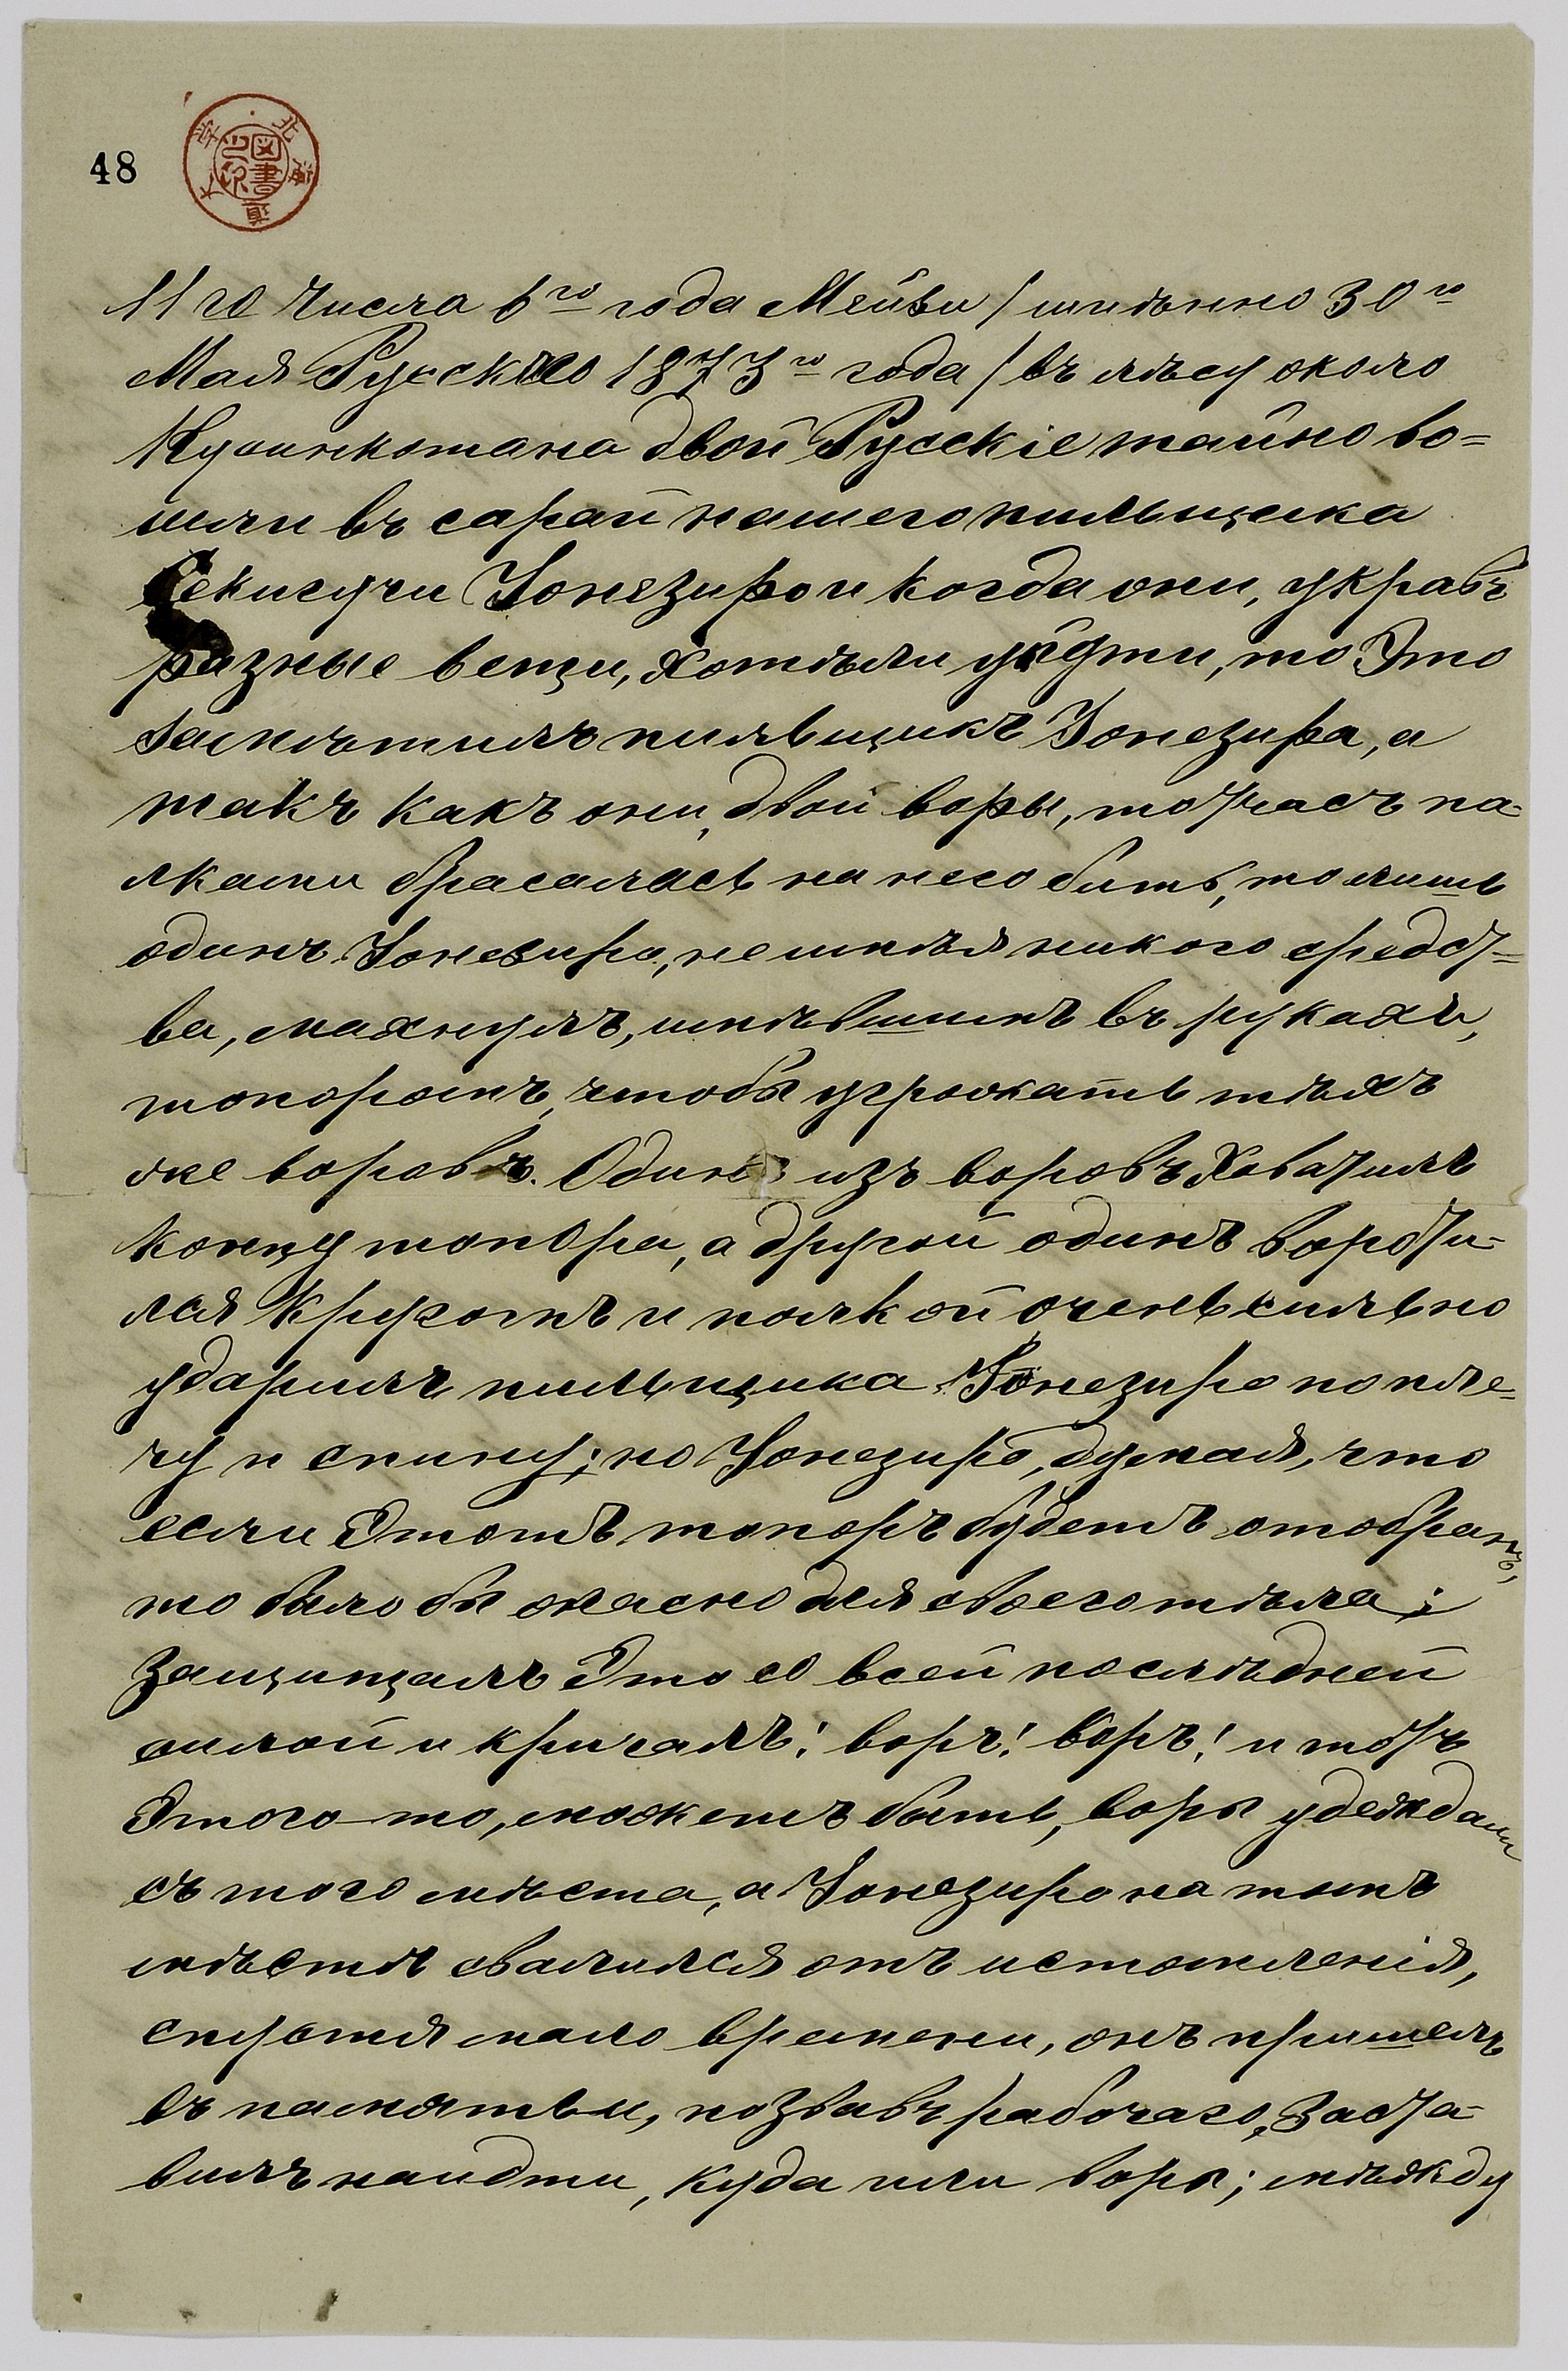 48
11го числа 6го года Мейзи / имѣнно 30го
Мая Русскаго 1873го года / въ лѣсу около
Кусункотана двой Русскіе тайно во=
шли въ сарай нашего пильщика
Секигучи Іонезиро и когда они, укравъ
разные вещи, хотѣли уйдти, то это
замѣтилъ пильвщикъ Іонезира, а
такъ какъ они, двой воры, тотчасъ па-
лками бросалась на него бить, то лишь
одинъ Іонезиро, не имѣя никого средст=
ва, махнулъ, имѣвшимъ въ рукахъ,
топоромъ, чтобы угрожать тѣхъ
же воровъ. Одинъ изъ воровъ Ховатилъ
концу топора, а другой одинъ воротн-
лся кругомъ и палкой очень сильно
ударилъ пильщика Іонезиро по пле=
чу и спину; но Іонезиро, думая, что
если этотъ топоръ будетъ отобранъ,
то было бы опасно для своего тѣла;
защищалъ это со всей послѣдней
силой и кричалъ! воръ! воръ! и отъ
этого-то, можетъ быть, воры убежали
съ того мѣста, а Іонезиро на томъ
мѣстѣ свалился отъ истомленія,
спустя мало времени, онъ пришелъ
въ памятьи, позвавъ рабочаго, заста-
вилъ найдти, куда шли воры; мѣжду